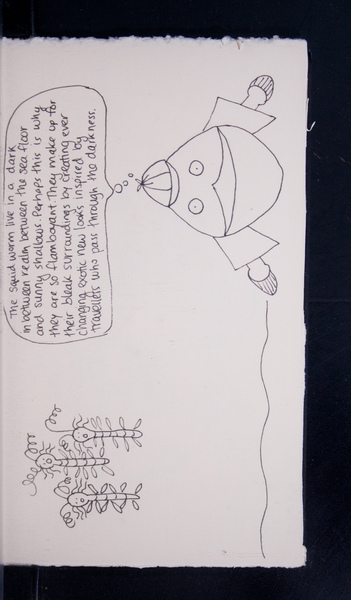 The squid worm live in a dark
in between realm between the sea floor
and sunny shallows. Perhaps this is why
they are so flamboyant. They make up for
their bleak surroundings by creating ever
changing exotic new looks inspired by
travellers who pass through the darkness.